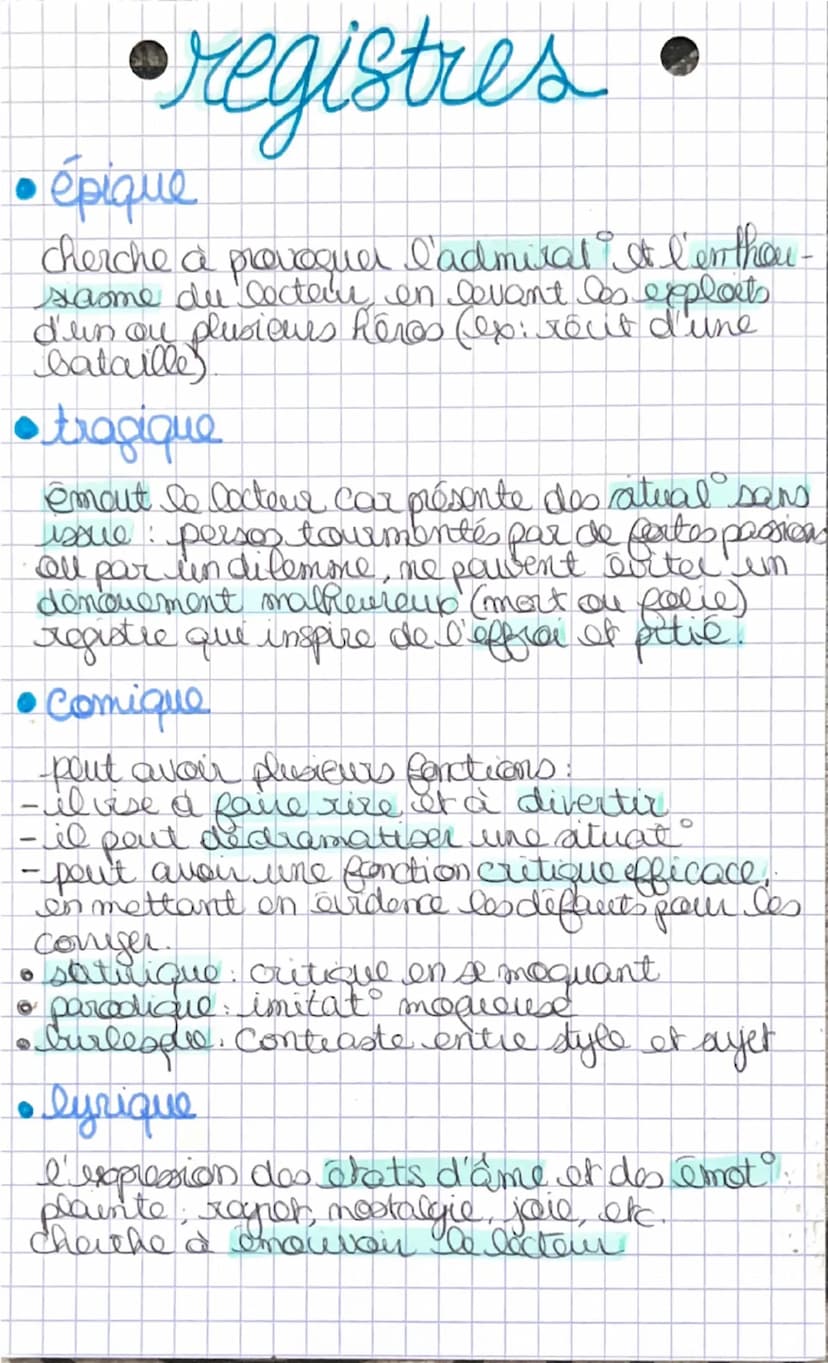 registres
• épique
cherche à provoquer l'admirat° et l'enthou-
siasme du lecteur, en levant les exploits
d'un ou plusieurs héros (ex: récit d'une
bataille).
• tragique
émeut le lecteur car présente des situat° sans
issue : persos tourmentés par de fortes passions
ou par un dilemme, ne peuvent éviter un
dénouement malheureux (mort ou folie)
registre qui inspire de l'effroi et pitié.
• comique
peut avoir plusieurs fonctions :
- il vise à faire rire et à divertir
- il peut dédramatiser une situat°
- peut avoir une fonction critique efficace,
en mettant en évidence les défauts pour les
corriger.
• satirique : critique en se moquant
• parodique : imitat° moqueuse
• burlesque : contraste entre style et sujet
• lyrique
l'expression des états d'âme et des émot° :
plainte, regret, nostalgie, joie, etc.
cherche à émouvoir le lecteur